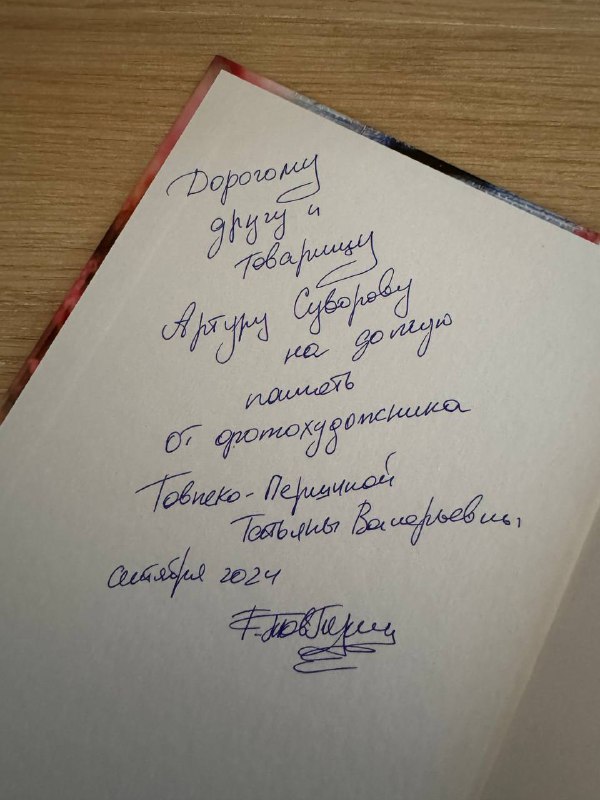 Дорогому
другу и
товарищу
Артуру Суворову
на долгую
память
от фотохудожника
Татьяны Валерьевны
сентября 2024